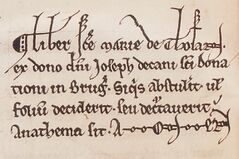 liber sce marie de
ex dono dni Joseph decani sci dona
tiani in Brug. Siqs abstulit ul
folium deciderit. seu detractauerit
Anathema sit. A